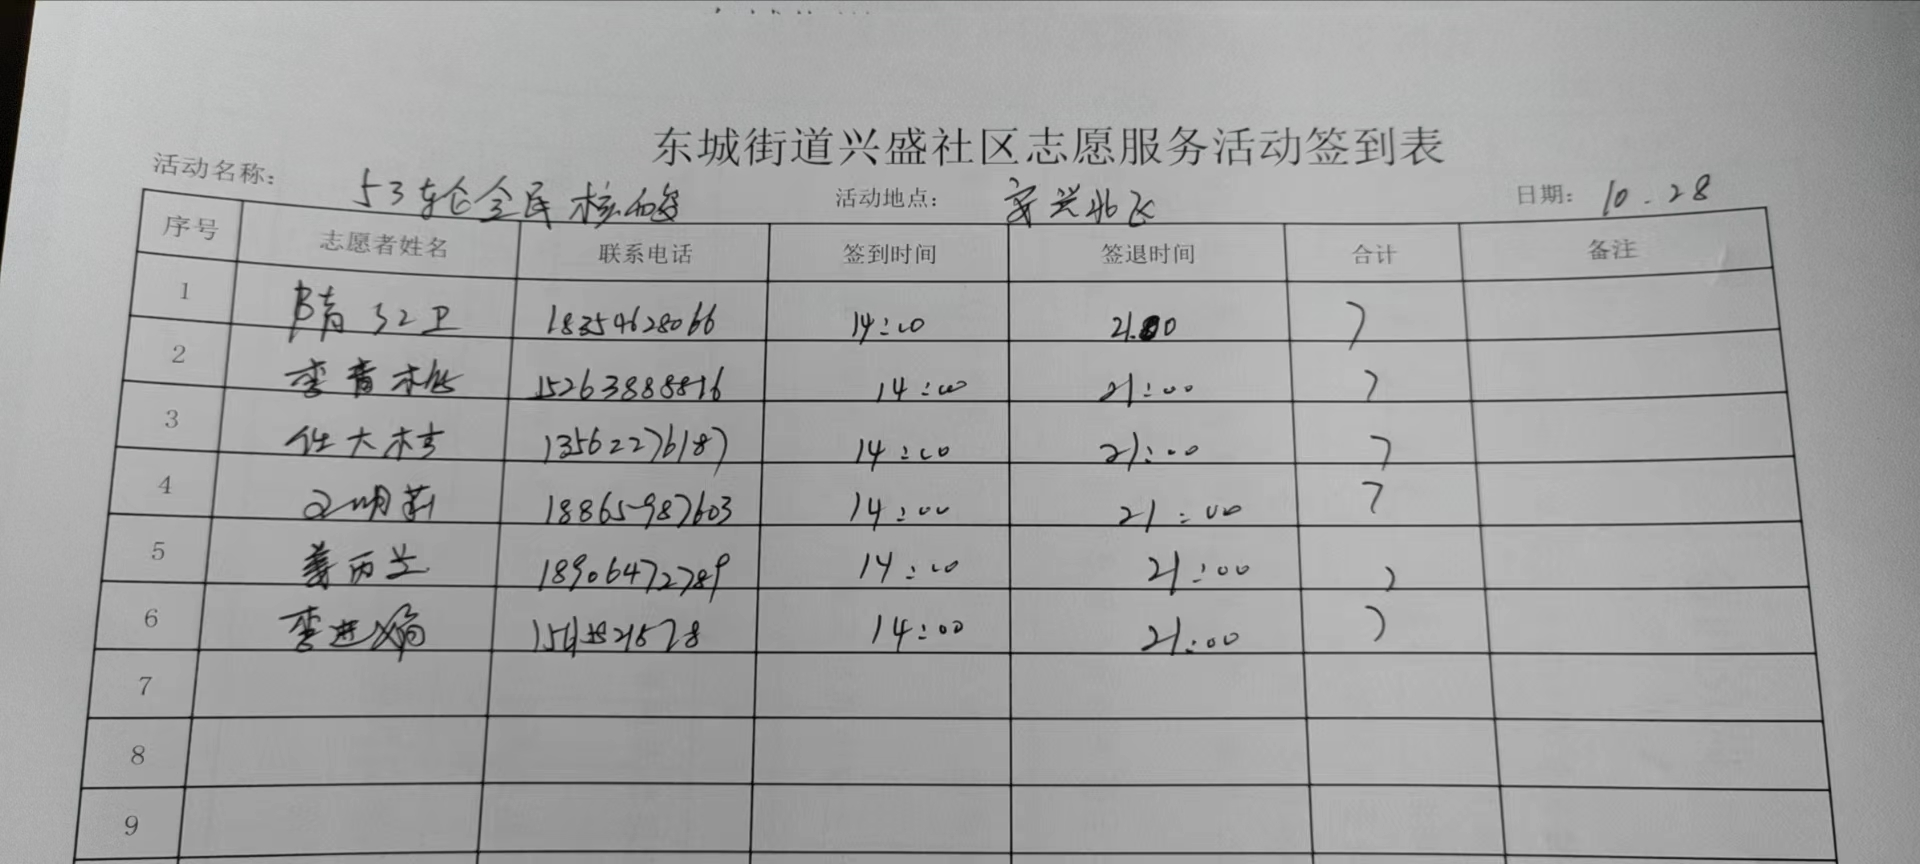 东城街道兴盛社区志愿服务活动签到表
活动名称: 53轮全民核酸 活动地点: 安兴北区 日期: 10.28
序号 志愿者姓名 联系电话 签到时间 签退时间 合计 备注
1 隋卫 18354628066 14:00 21:00 7
2 李青 15263888816 14:00 21:00 7
3 任大 13562276187 14:00 21:00 7
4 王明莉 18865987603 14:00 21:00 7
5 姜丙兰 18906472789 14:00 21:00 7
6 李进 14:00 21:00 7
7
8
9